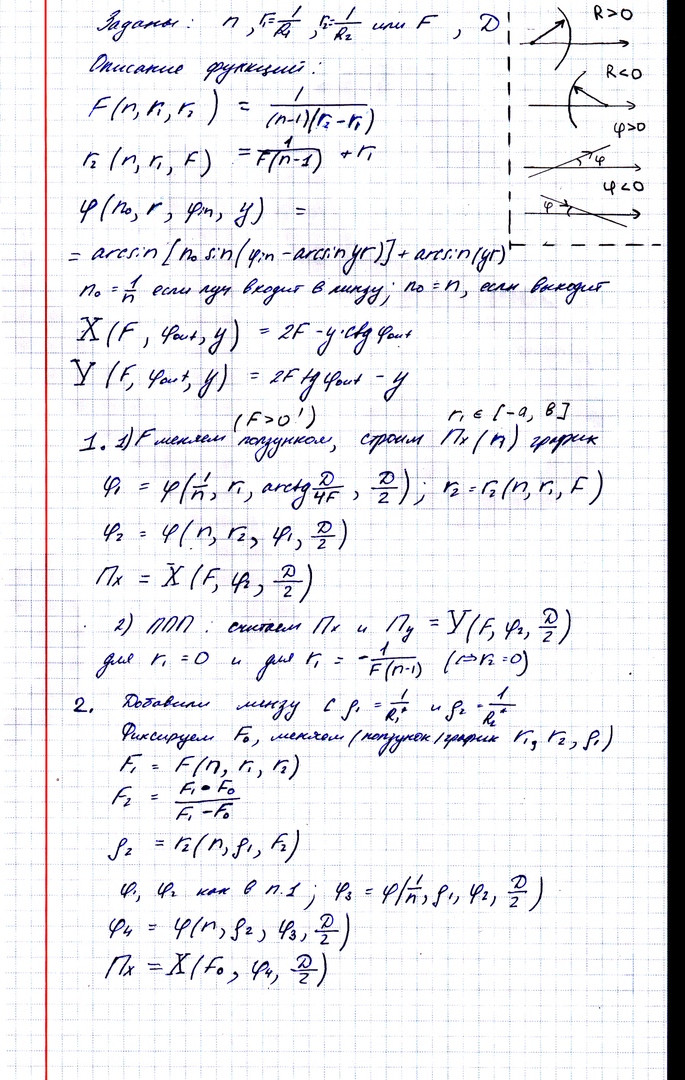 Заданы: n, r₁=1/R₁, r₂=1/R₂ или F, D
R>0
Описание функций:
R<0
F(n, r₁, r₂) = 1/((n-1)(r₂-r₁))
φ>0
r₂(n, r₁, F) = 1/(F(n-1)) + r₁
φ
φ<0
φ
φ(n₀, r, φin, y) =
= arcsin[n₀ sin(φin - arcsin yr)] + arcsin(yr)
n₀ = 1/n если луч входит в линзу; n₀ = n, если выходит
X(F, φout, y) = 2F - y·ctg φout
Y(F, φout, y) = 2F tg φout - y
(F>0!) r₁ ∈ [-a, b]
1. 1) F меняем ползунком, строим Πx(r₁) график
φ₁ = φ(1/n, r₁, arctg D/4F, D/2); r₂ = r₂(n, r₁, F)
φ₂ = φ(n, r₂, φ₁, D/2)
Πx = X(F, φ₂, D/2)
2) ППП: считаем Πx и Πy = Y(F, φ₂, D/2)
для r₁ = 0 и для r₁ = -1/(F(n-1)) (⇔ r₂ = 0)
2. Добавили линзу с ρ₁ = 1/R₁* и ρ₂ = 1/R₂*
Фиксируем F₀, меняем (ползунок/график r₁, r₂, ρ₁)
F₁ = F(n, r₁, r₂)
F₂ = F₁•F₀/(F₁-F₀)
ρ₂ = r₂(n, ρ₁, F₂)
φ₁, φ₂ как в п.1; φ₃ = φ(1/n, ρ₁, φ₂, D/2)
φ₄ = φ(n, ρ₂, φ₃, D/2)
Πx = X(F₀, φ₄, D/2)